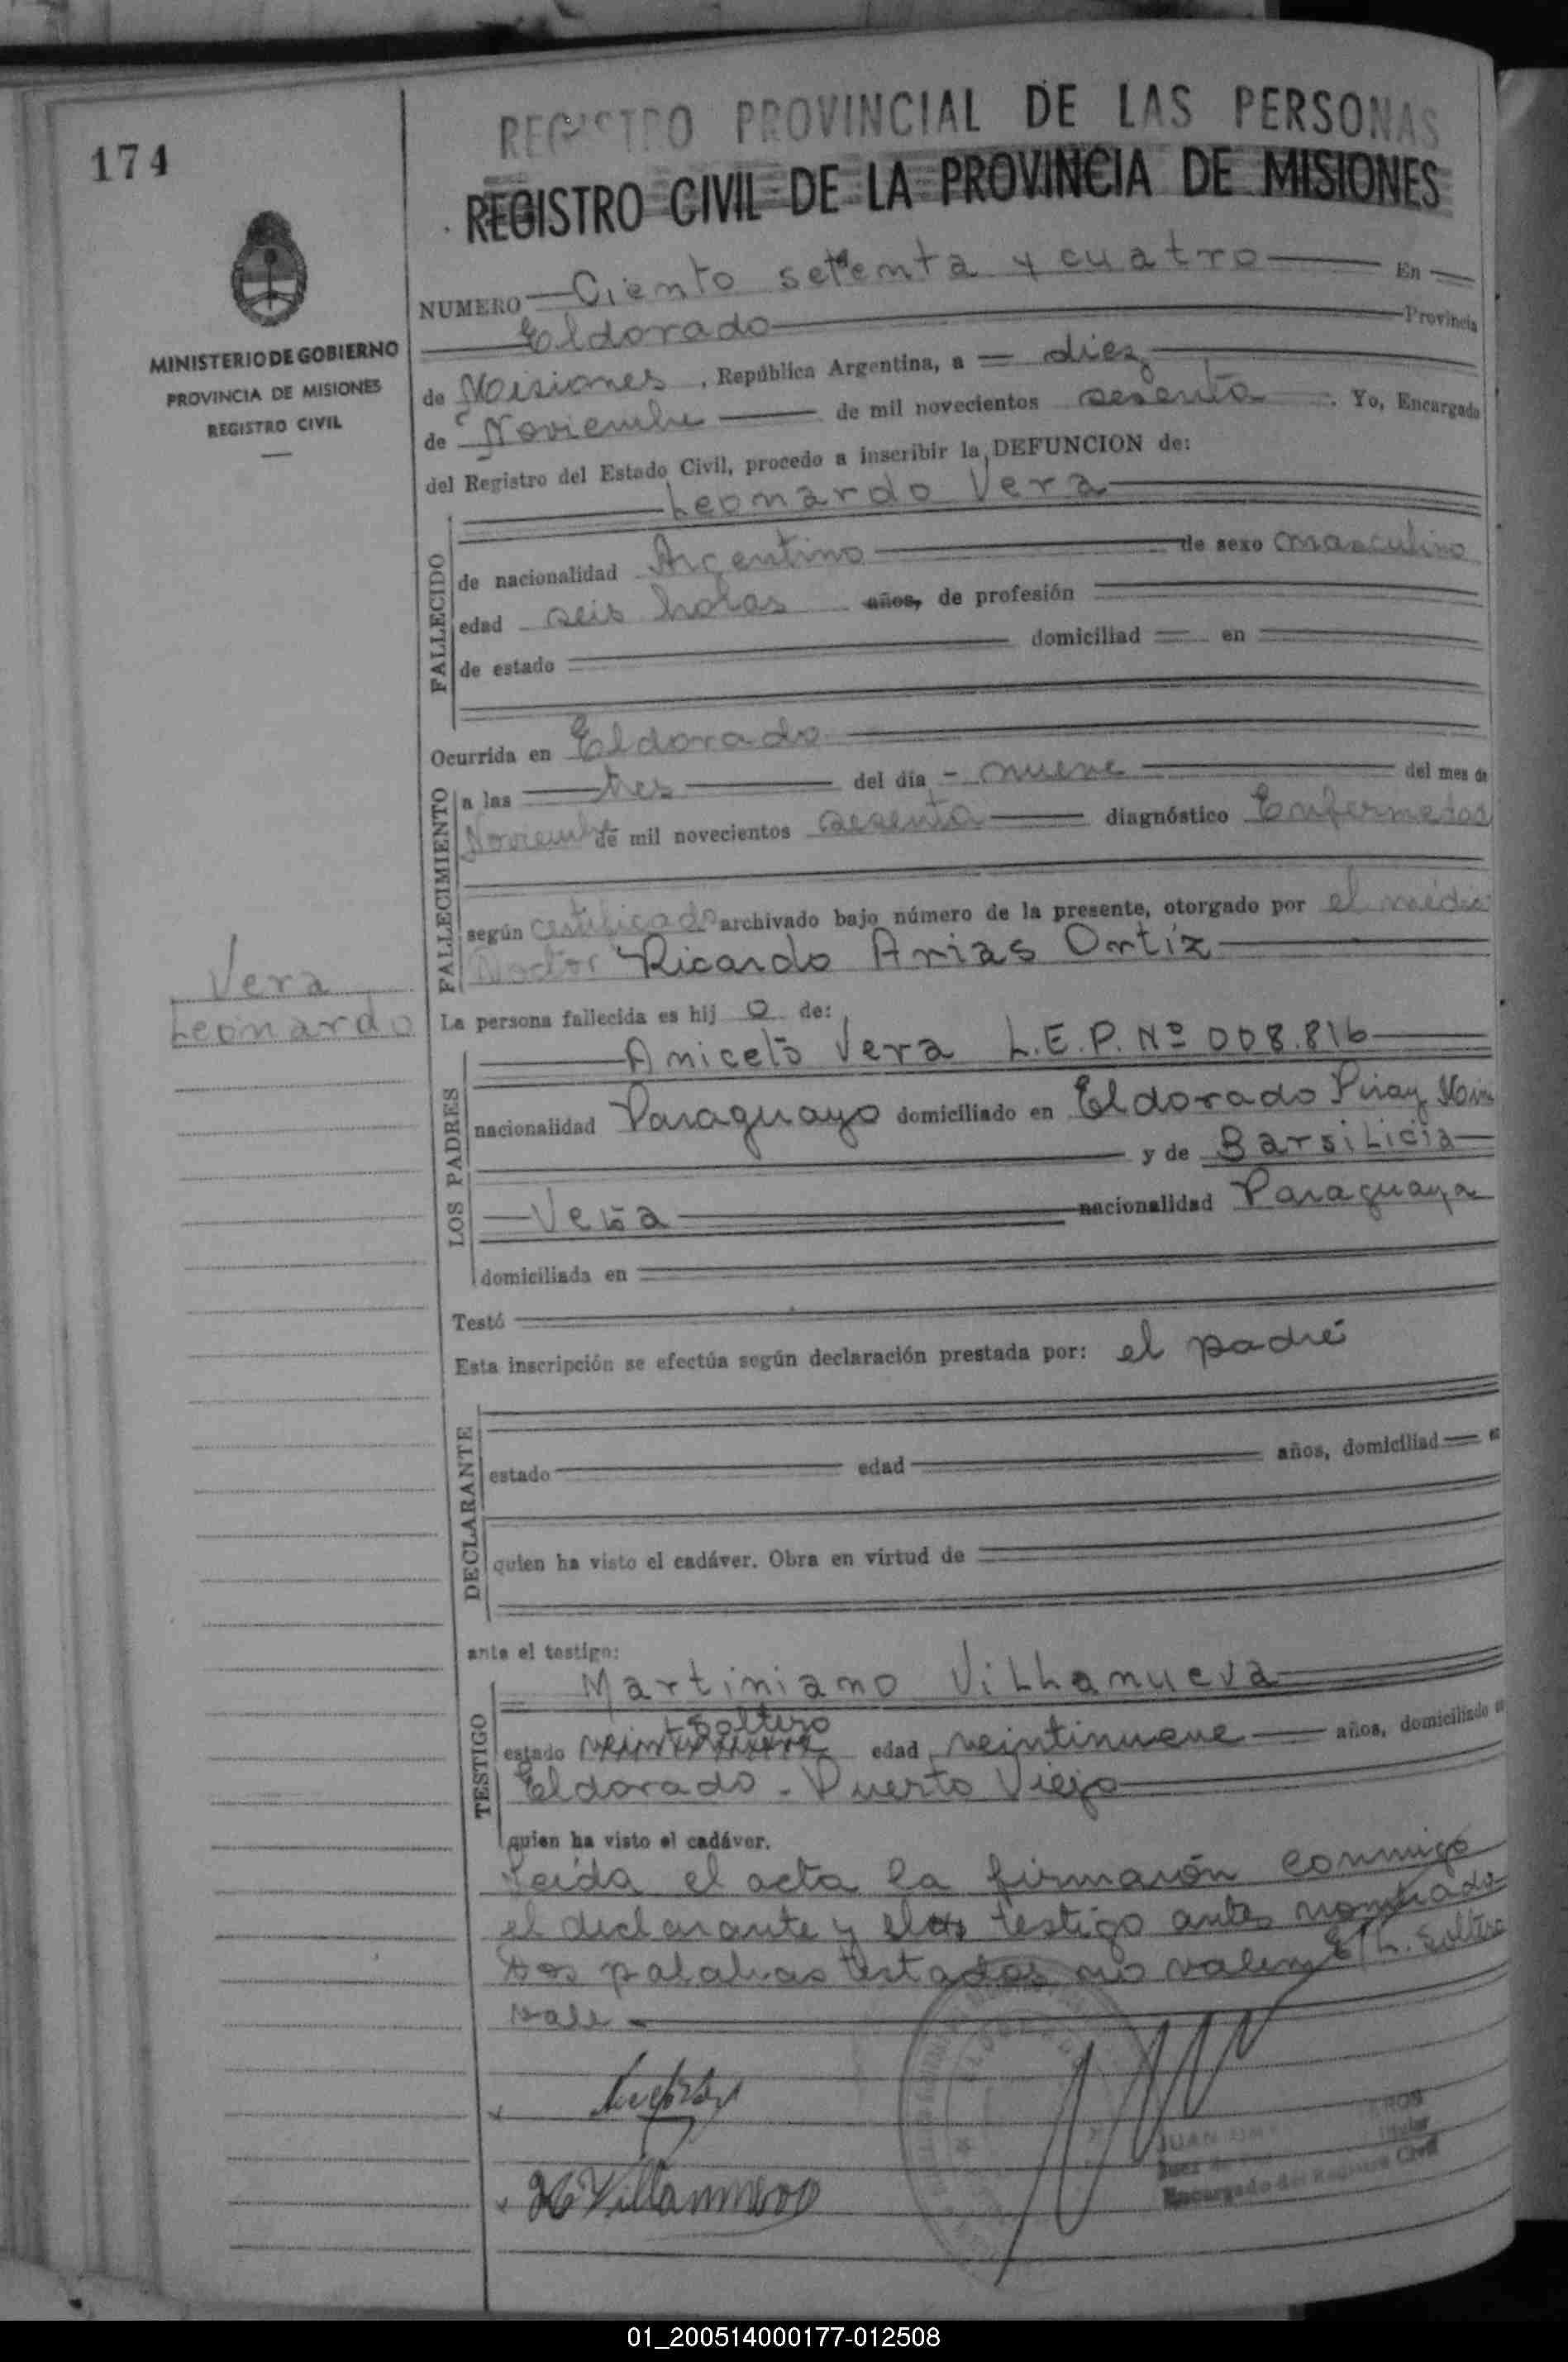 174
REGISTRO PROVINCIAL DE LAS PERSONAS
REGISTRO CIVIL DE LA PROVINCIA DE MISIONES
MINISTERIO DE GOBIERNO
PROVINCIA DE MISIONES
REGISTRO CIVIL
NUMERO Ciento setenta y cuatro En
Eldorado Provincia
de Misiones, República Argentina, a diez
de Noviembre de mil novecientos sesenta. Yo, Encargado
del Registro del Estado Civil, procedo a inscribir la DEFUNCION de:
Leonardo Vera
FALLECIDO
de nacionalidad Argentino de sexo masculino
edad seis horas años, de profesión
de estado domiciliad en
Ocurrida en Eldorado
FALLECIMIENTO
a las tres del día - nueve del mes de
Noviembre de mil novecientos sesenta diagnóstico Enfermedad
según certificado archivado bajo número de la presente, otorgado por el médico
Doctor Ricardo Arias Ortíz
Vera
Leonardo
La persona fallecida es hij o de:
LOS PADRES
Aniceto Vera L.E.P. Nº 008.816
nacionalidad Paraguayo domiciliado en Eldorado Piray
y de Barsilicia
Vera nacionalidad Paraguaya
domiciliada en
Testó
Esta inscripción se efectúa según declaración prestada por: el padre
DECLARANTE
estado edad años, domiciliad
quien ha visto el cadáver. Obra en virtud de
ante el testigo:
TESTIGO
Martiniano Villanueva
Soltero
estado edad veintinueve años, domiciliado
Eldorado - Puerto Viejo
quien ha visto el cadáver.
Leida el acta la firmarón conmigo
el declarante y el testigo antes nombrado
Dos palabras testadas no valen E/L. Soltero
vale
Villanueva
JUAN
Juez
Titular
Encargado del Registro Civil
01_200514000177-012508